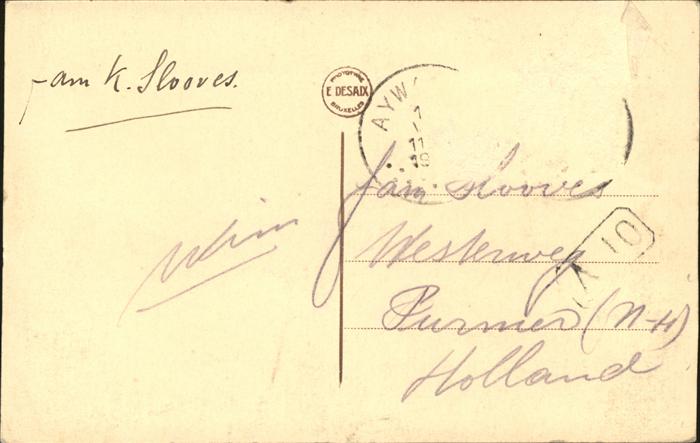 Fam K. Slooves.
PHOTOTYPIE
E DESAIX
BRUXELLES
AYW
Wim
fam Slooves
Westerweg
Purmer (N-H)
Holland